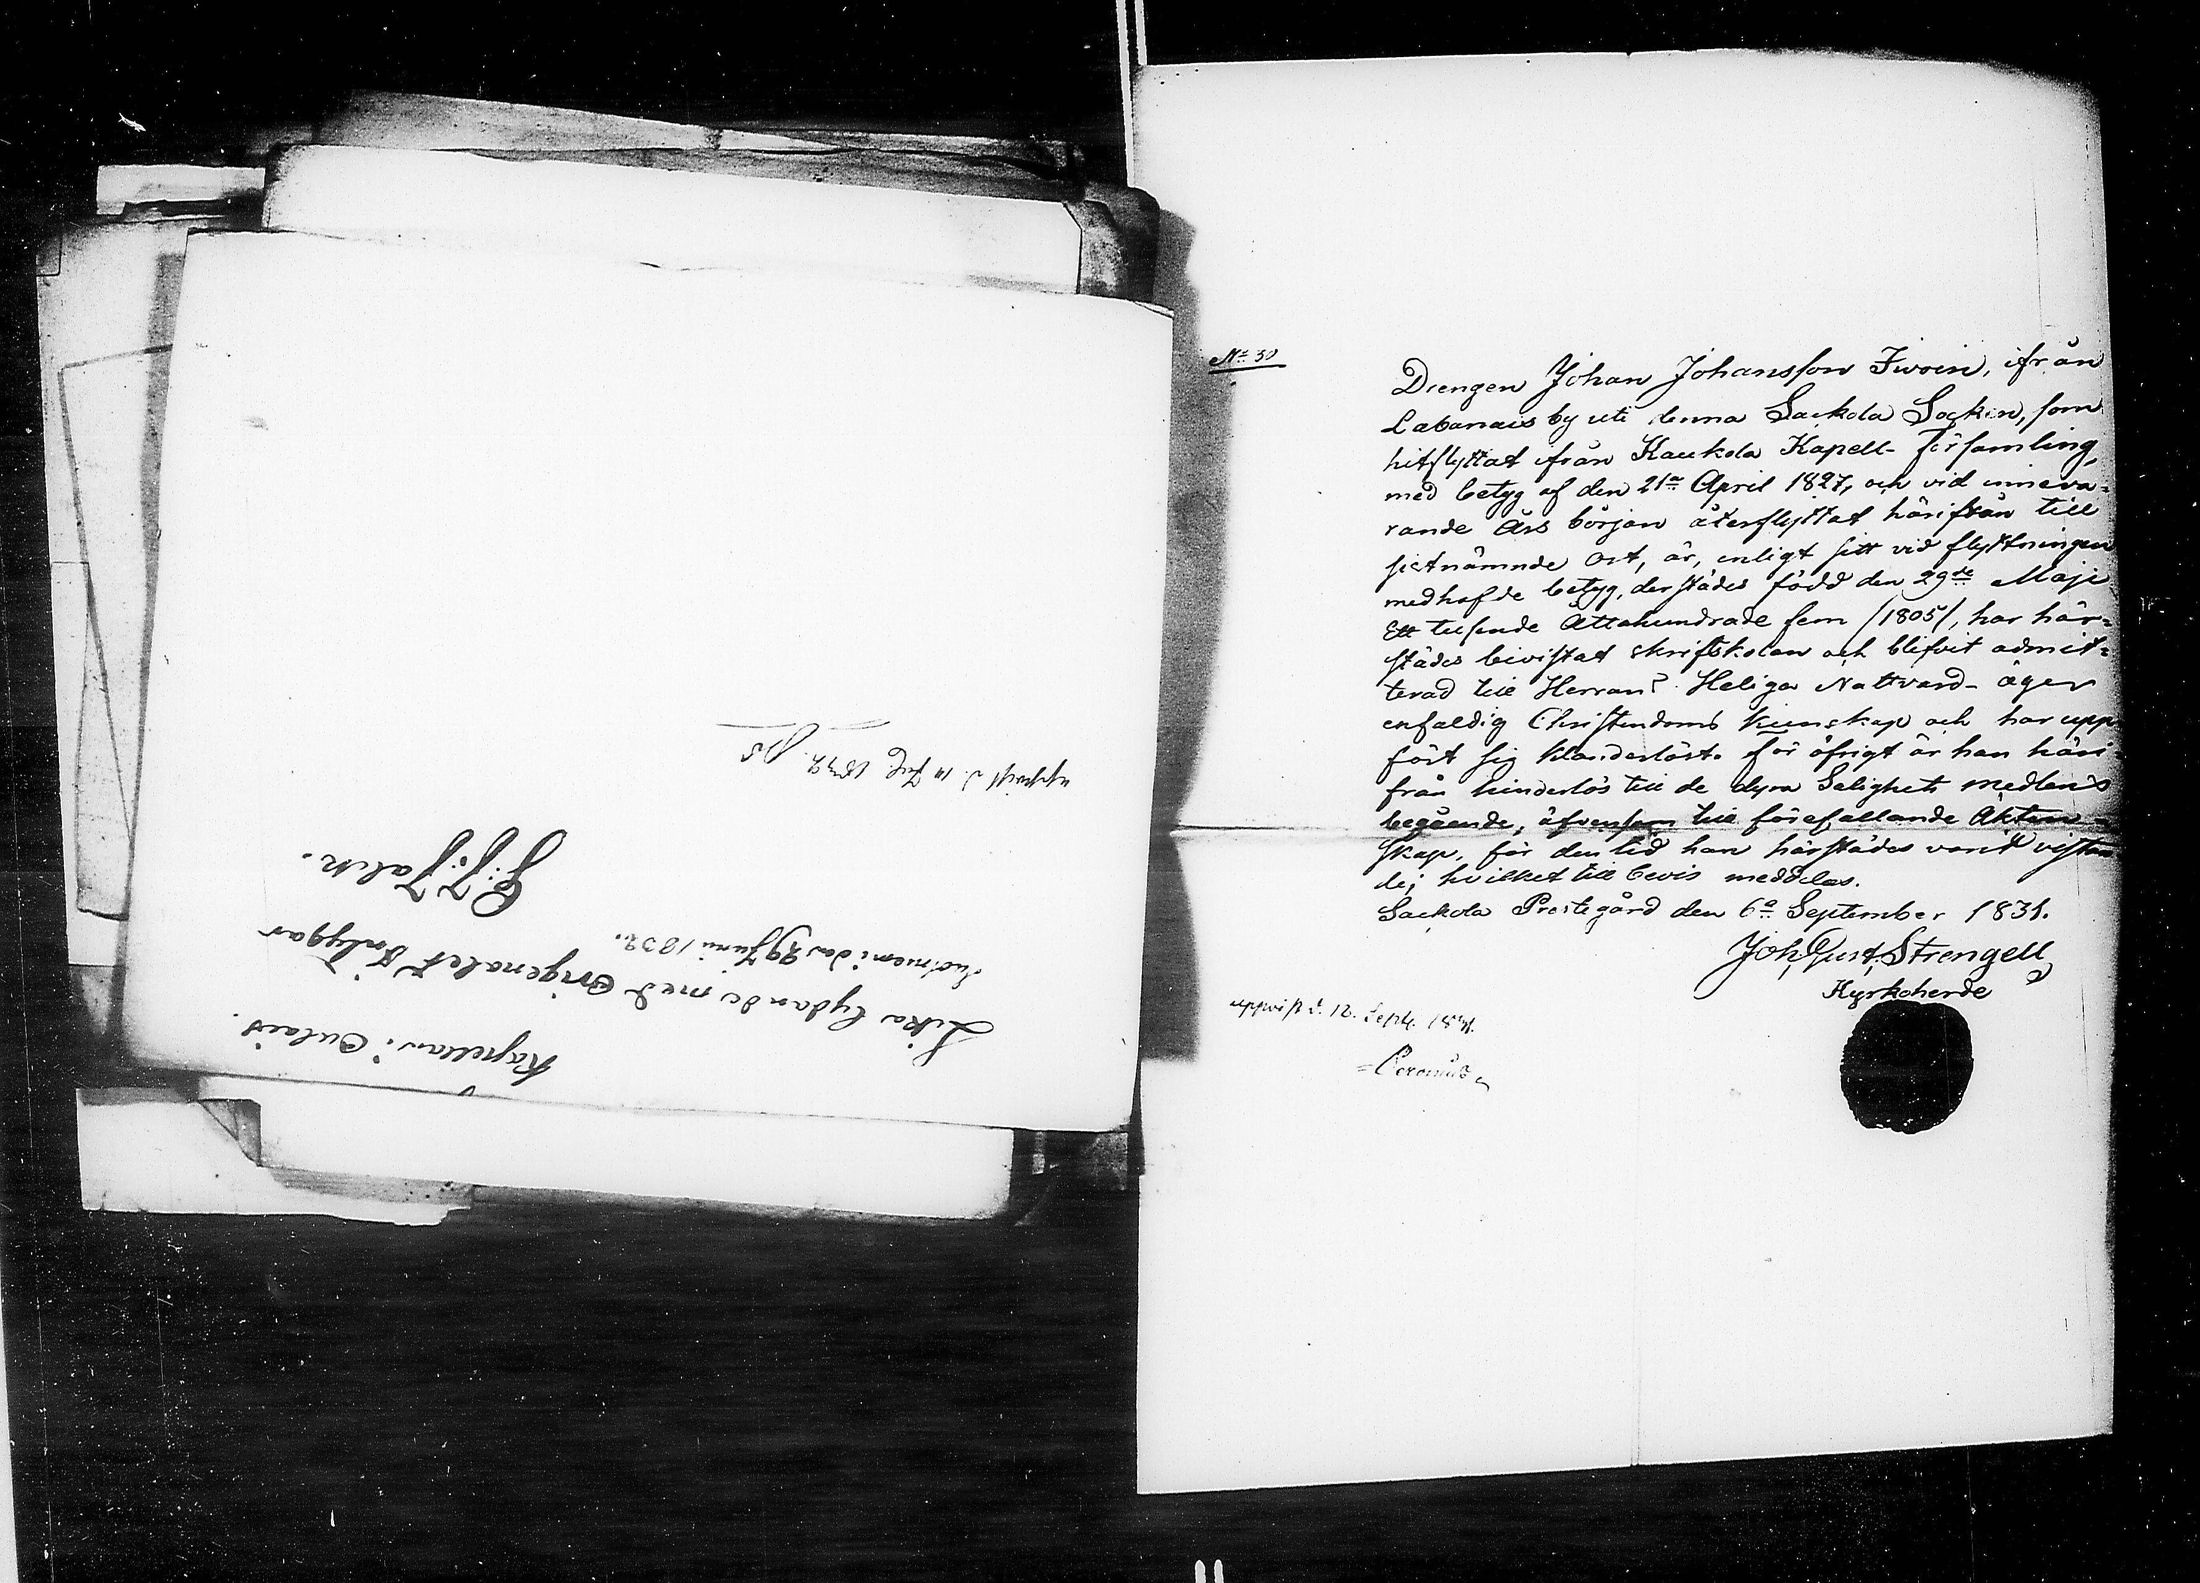 Kapellan i Oulais.
Lika lydande med Originalet Intygar
den 29 Juni 1832.
uppvist d. 1832.
No 30
Drengen Johan Johansson Iwoin, ifrån
Labanais by uti denna Sackola Sockn, som
hitflyttat ifrån Kaukola Kapell- församling,
med betyg af den 21a April 1827, och vid inneva=
rande Års början återflyttat härifrån till
sistnämnde Ort, är, enligt sitt vid flyttningen
medhafde betyg, derstädes född den 29de Maji
Ett tusende Åttahundrade fem /1805/, har här=
städes bevistat skriftskolan och blifvit admit=
terad till Herrans Heliga Nattvard- äger
enfaldig Christendoms kunskap och har upp
fört sig klanderlöst. för öfrigt är han häri
från hinderlös till de dyra Salighets medlens
begående, äfvensom till förefallande Äkten=
skap, för den tid han härstädes varit vistan
de; hvilket till bevis meddelas.
Sackola Prestegård den 6a September 1831.
Joh. Gust. Strengell
Kyrkoherde
uppvist d. 12. Sept. 1831.